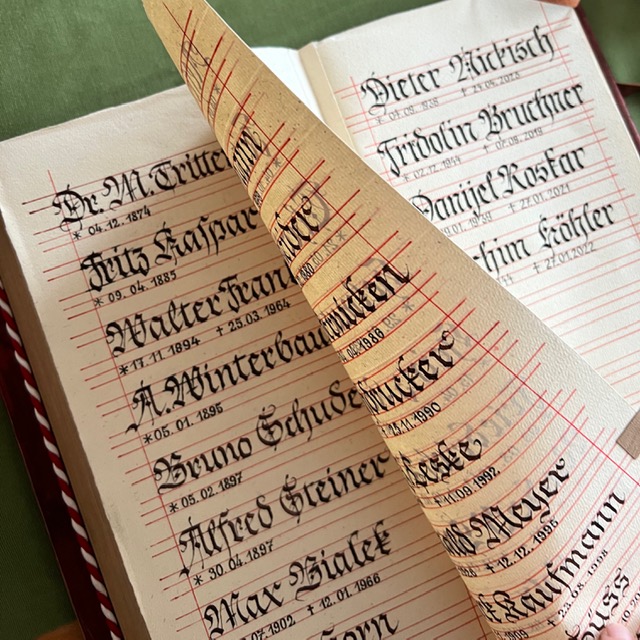 Dr. M. Tritte
* 04.12.1874
Fritz Kaspar
* 09.04.1885
Walter Fran
* 17.11.1894 + 25.03.1964
A. Winterbau
* 05.01.1895
Bruno Schude
* 05.02.1897
Alfred Steiner
* 30.04.1897
Max Bialek
07.1902 + 12.01.1966
Horn
rücken
rucker
25.11.1990
Keske
11.09.1992
Meyer
+ 12.12.1995
Kaufmann
+ 23.08.1998
Süss
Dieter
Fridolin Bruckner
* 02.12.1944 + 07.08.2019
Danijel Roskar
+ 27.01.2021
chim Köhler
+ 27.01.2022